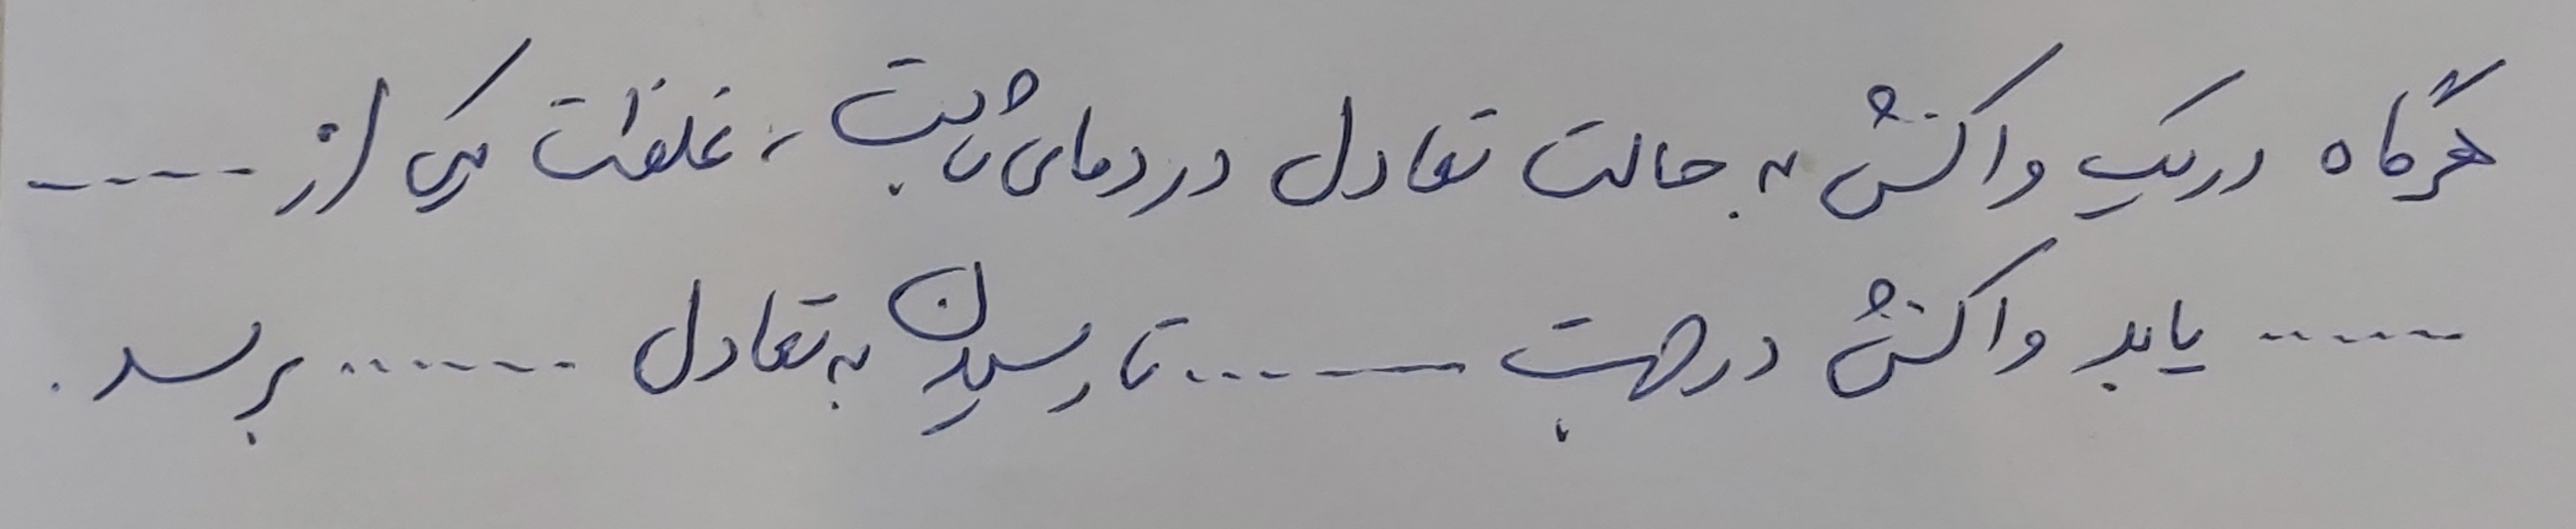 هرگاه در یک واکنش به حالت تعادل در دمای ثابت، غلظت یکی از -----
...... یابد واکنش در جهت ------ تا رسیدن به تعادل ...... برسد.